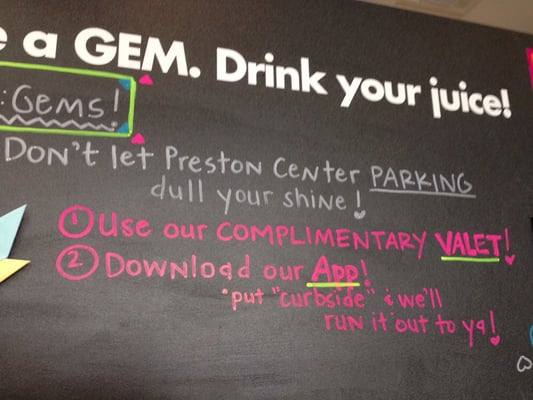 e a GEM. Drink your juice!
:Gems!
Don't let Preston Center PARKING
dull your shine!
① Use our COMPLIMENTARY VALET!
② Download our App!
*put "curbside" & we'll
run it out to ya!